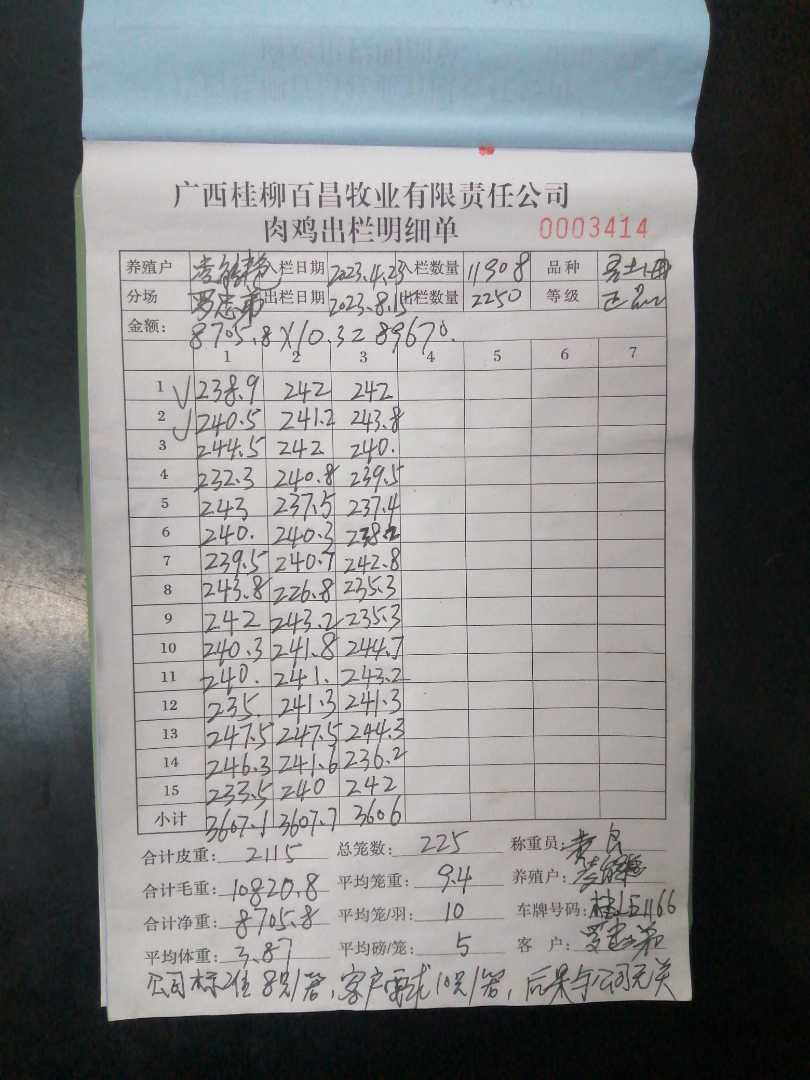 广西桂柳百昌牧业有限责任公司
肉鸡出栏明细单 0003414
养殖户 入栏日期 2023.4.23 入栏数量 11908 品种
分场 出栏日期 2023.8.15 出栏数量 2250 等级 正品
金额: 8705.8×10.3= 89670.
1 2 3 4 5 6 7
1 238.9 242 242
2 240.5 241.2 243.8
3 244.5 242 240.
4 232.3 240.8 239.5
5 243 237.5 237.4
6 240. 240.3 238.2
7 239.5 240.7 242.8
8 243.8 226.8 235.3
9 242 243.2 235.3
10 240.3 241.8 244.7
11 240. 241. 243.2
12 235. 241.3 241.3
13 247.5 247.5 244.3
14 246.3 241.6 236.2
15 233.5 240 242
小计 3607.1 3607.7 3606
合计皮重: 2115 总笼数: 225 称重员:
合计毛重: 10820.8 平均笼重: 9.4 养殖户:
合计净重: 8705.8 平均笼/羽: 10 车牌号码:
平均体重: 3.87 平均磅/笼: 5 客 户:
公司标准8只/笼,客户要求10只/笼,后果与公司无关